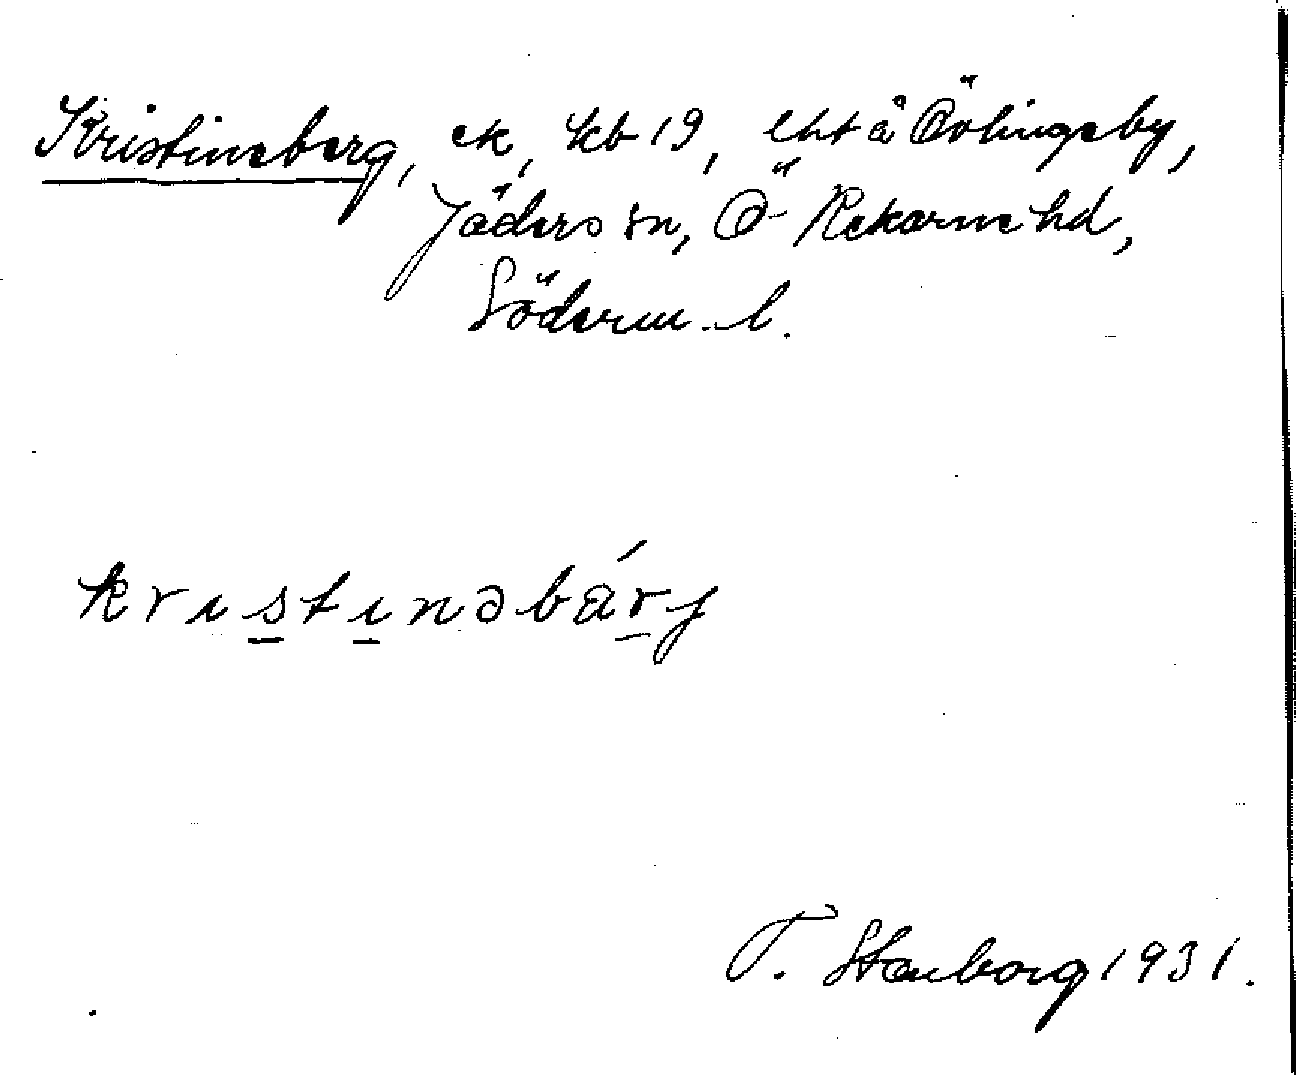 Kristineberg, ek, kb 19, lht å Övlingeby,
Jäders sn, Ö Rekarne hd,
Söderm. l.
kristinəbárj
T. Stenborg 1931.